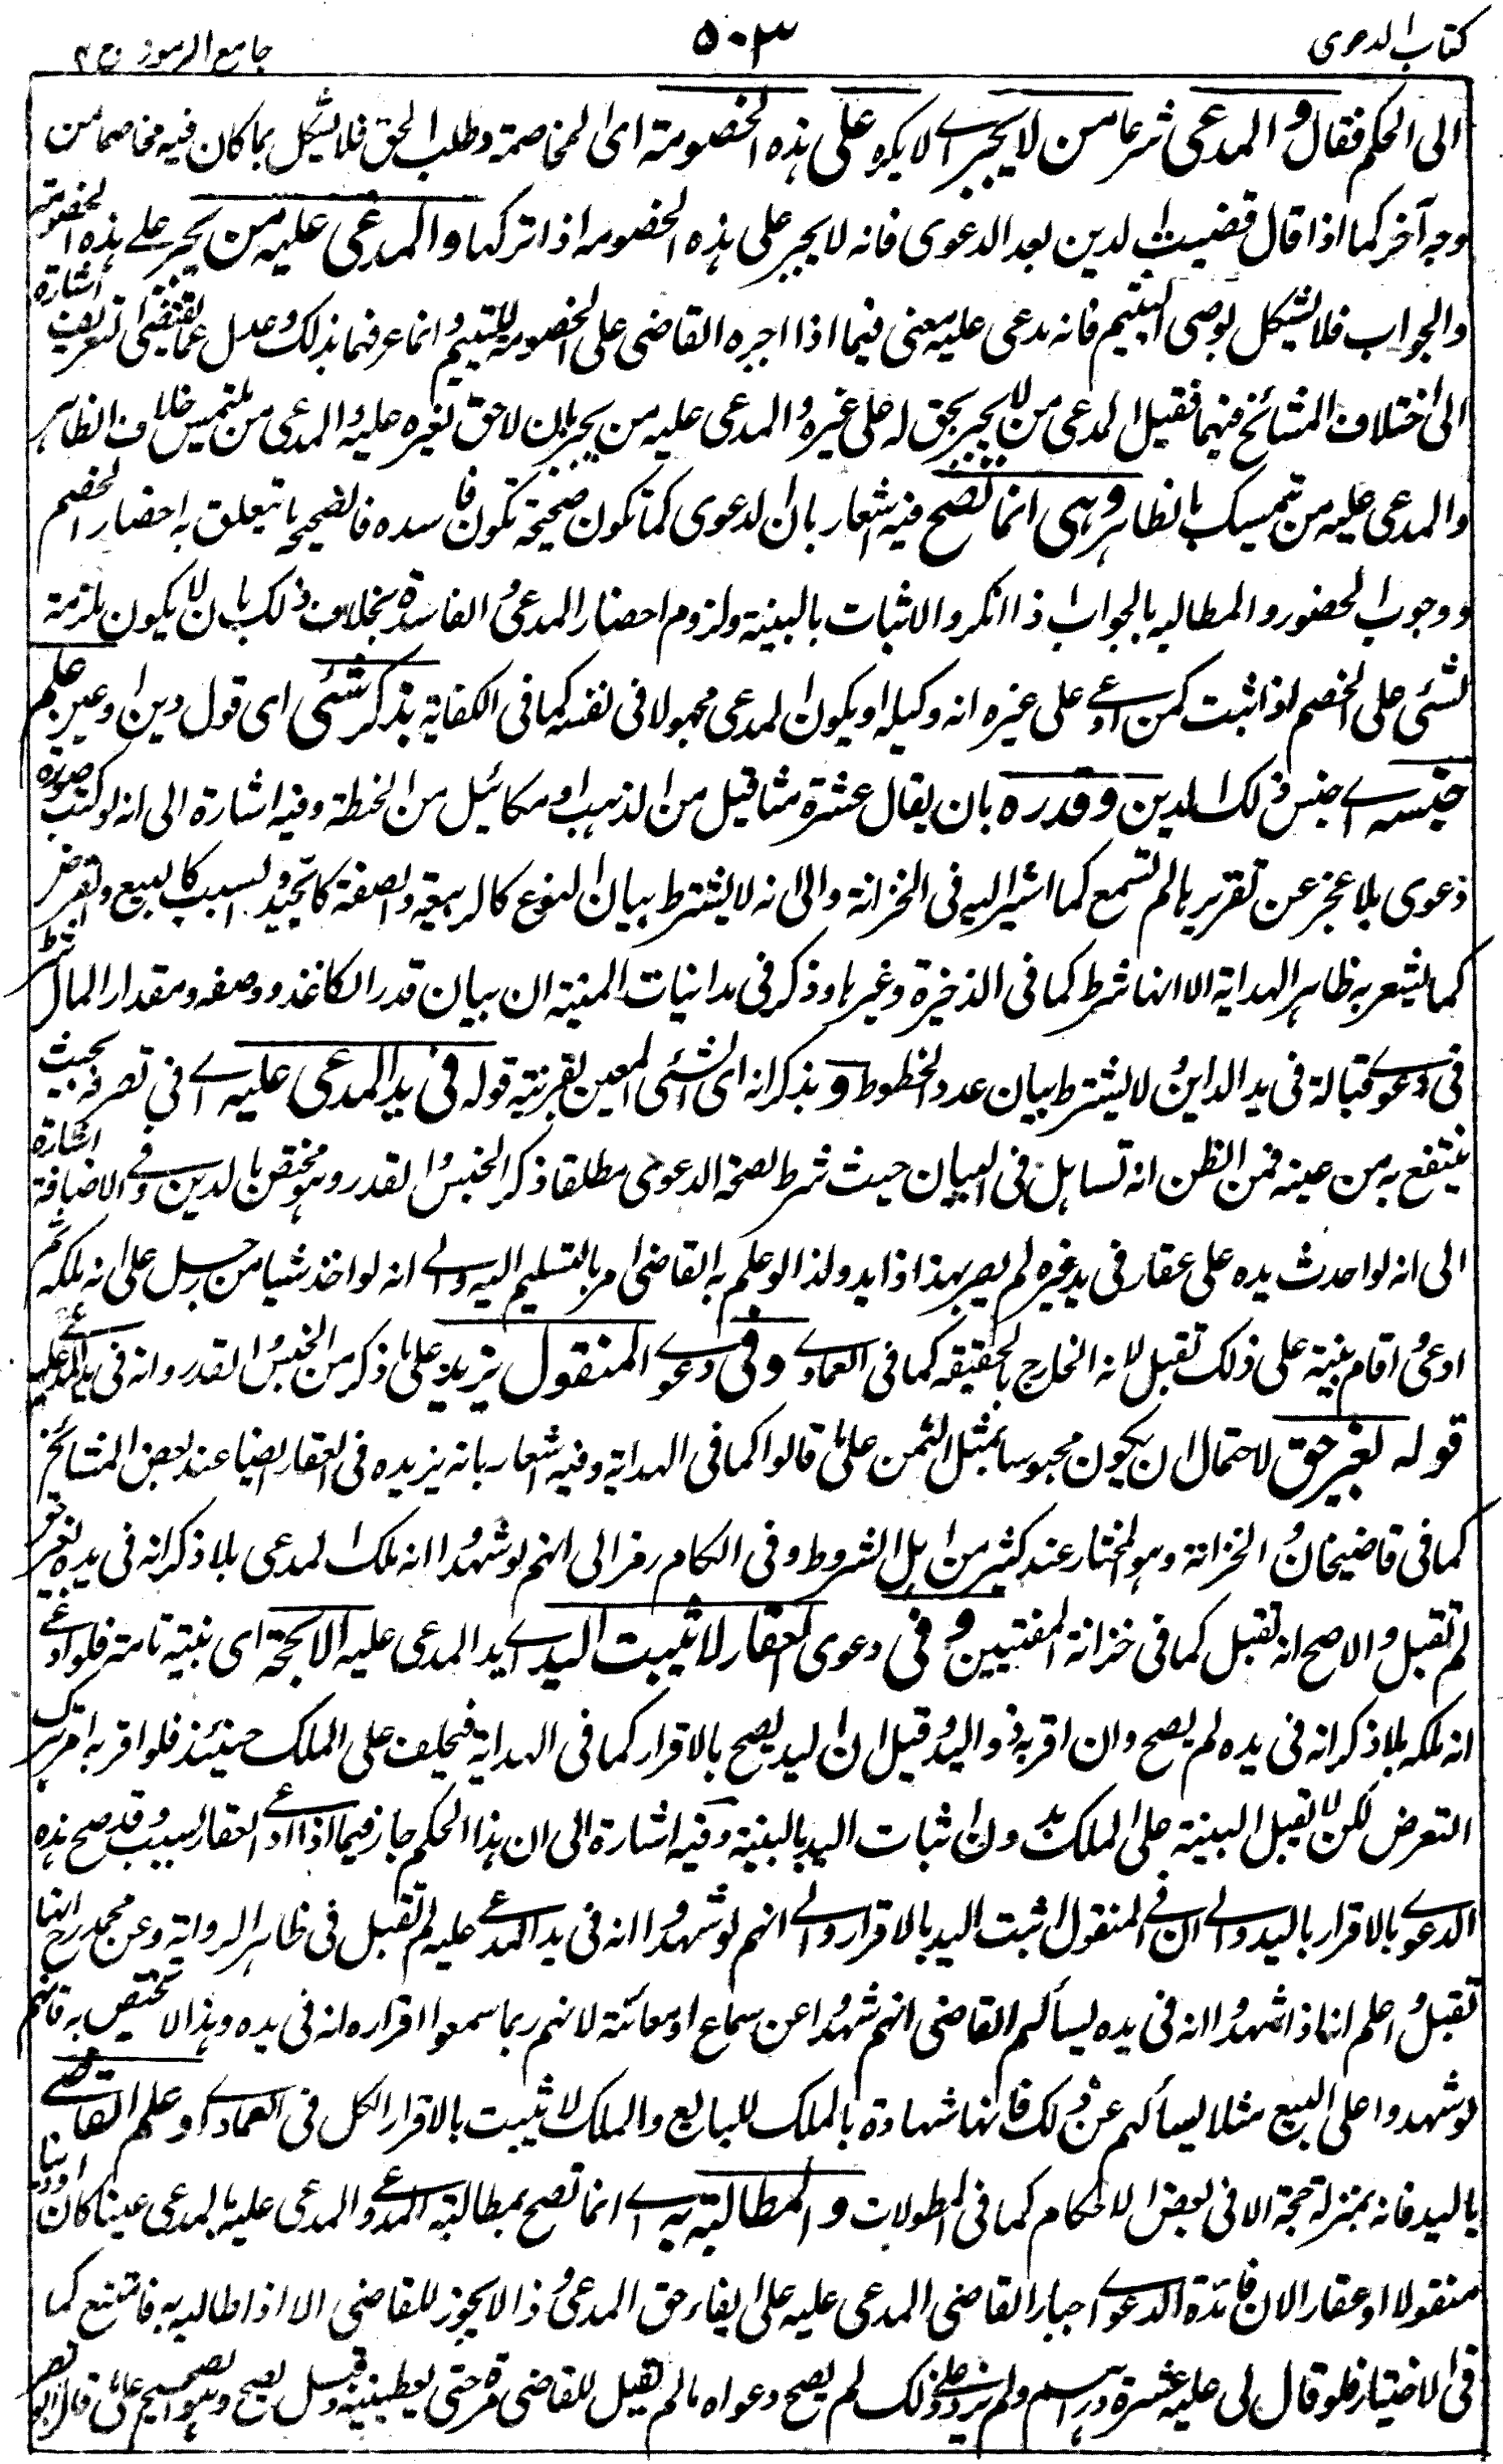 كتاب الدعوى
٥٠٣
جامع الرموز ج ٢
الى الحكم فقال والمدعى شرعا من لا يجبر اى لا يكره على هذه الخصومة اى المخاصمة وطلب الحق فلا يشكل بما كان فيه مخاصما من
وجه آخر كما اذا قال قضيت الدين بعد الدعوى فانه لا يجبر على هذه الخصومة اذا تركها والمدعى عليه من يجبر على هذه الخصومة
والجواب فلا يشكل بوصى اليتيم فانه مدعى عليه معنى فيما اذا اجبره القاضى على الخصومة لليتيم وانما عرفهما بذلك وعدل عما يقتضى التعريف اشارة
الى اختلاف المشائخ فيهما فقيل المدعى من لا يجبر بحق له على غيره والمدعى عليه من يجبر بان لا حق لغيره عليه والمدعى من يلتمس خلاف الظاهر
والمدعى عليه من يتمسك بالظاهر وهى انما تصح فيه اشعار بان الدعوى كما تكون صحيحة تكون فاسدة فالصحيحة ما يتعلق به احضار الخصم
ووجوب الحضور والمطالبة بالجواب اذا انكر والاثبات بالبينة ولزوم احضار المدعى والفاسدة بخلاف ذلك بان لا يكون ملزمة
لشئ على الخصم اذا ثبت كمن ادعى على غيره انه وكيله او يكون المدعى مجهولا فى نفسه كما فى الكفاية بذكر شئ اى قول دين او عين علم
جنسه اى جنس ذلك الدين وقدره بان يقال عشرة مثاقيل من الذهب او مكائيل من الحنطة وفيه اشارة الى انه لو كتب صورة
دعوى بلا عجز عن تقريرها لم تسمع كما اشير اليه فى الخزانة والى انه لا يشترط بيان النوع كالربيعية والصفة كالجيد والسبب كالبيع والقرض
كما يشعر به ظاهر الهداية الا انها شرط كما فى الذخيرة وغيرها وذكر فى مداينات المنية ان بيان قدر الكاغذ ووصفه ومقدار المال شرط
فى دعوى قبالة فى يد الداين ولا يشترط بيان عدد الخطوط وبذكر انه اى الشئ المعين بقرينة قوله فى يد المدعى عليه اى فى تصرفه بحيث
ينتفع به من عينه فمن الظن انه تساهل فى البيان حيث شرط لصحة الدعوى مطلقا ذكر الجنس والقدر وهو مختص بالدين وفى الاضافة اشارة
الى انه لو احدث يده على عقار فى يد غيره لم يصر بهذا ذا يد ولذا لو علم به القاضى امر بالتسليم اليه والى انه لو اخذ شيئا من رجل على انه ملكه ثم
ادعى واقام بينة على ذلك تقبل لانه الخارج بالحقيقة كما فى العمادى وفى دعوى المنقول يزيد على ما ذكر من الجنس والقدر وانه فى يد المدعى عليه
قوله بغير حق لاحتمال ان يكون محبوسا بمثل الثمن على ما قالوا كما فى الهداية وفيه اشعار بانه يزيده فى العقار ايضا عند بعض المشائخ
كما فى قاضيخان والخزانة وهو المختار عند كثير من اهل الشروط وفى الكلام رمز الى انهم لو شهدوا انه ملك المدعى بلا ذكر انه فى يده بغير حق
لم تقبل والاصح انه تقبل كما فى خزانة المفتيين وفى دعوى العقار لا تثبت اليد اى يد المدعى عليه الا بحجة اى بينة تامة فلو ادعى
انه ملكه بلا ذكر انه فى يده لم يصح وان اقر به ذو اليد وقيل ان اليد يصح بالاقرار كما فى الهداية فيحلف على الملك حينئذ فلو اقر به امر بترك
التعرض لكن لا تقبل البينة على الملك بدون اثبات اليد بالبينة وفيه اشارة الى ان هذا الحكم جار فيما اذا ادعى العقار بسبب وقد صح هذه
الدعوى بالاقرار باليد والى ان فى المنقول اثبت اليد بالاقرار والى انهم لو شهدوا انه فى يد المدعى عليه لم تقبل فى ظاهر الرواية وعن محمد رح انها
تقبل واعلم انها اذا شهدوا انه فى يده يسألهم القاضى انهم شهدوا عن سماع او معائنة لانهم ربما سمعوا اقراره انه فى يده وهذا لا تختص به فانهم
لو شهدوا على البيع مثلا يسألهم عن ذلك فانها شهادة بالملك للبايع والملك لا يثبت بالاقرار الكل فى العمادى او علم القاضى
باليد فانه بمنزلة حجة الا فى بعض الاحكام كما فى المطولات والمطالبة به اى انما تصح بمطالبة المدعى والمدعى عليه بالمدعى عينا كان او دينا
منقولا او عقارا لان فائدة الدعوى اجبار القاضى المدعى عليه على ايفاء حق المدعى وذا لا يجوز للقاضى الا اذا طالبه به فامتنع كما
فى الاختيار فلو قال لى عليه عشرة دراهم ولم يزد على ذلك لم يصح دعواه ما لم يقل للقاضى مره حتى يعطينيه وقيل يصح وهو الصحيح على ما قال ابو نصر